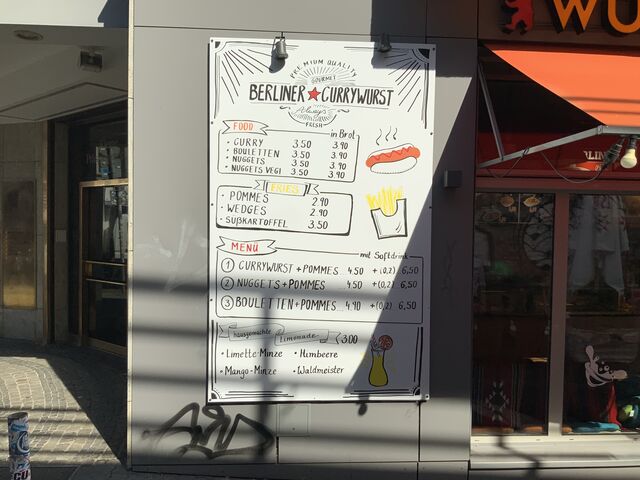 WU
PREMIUM QUALITY
GOURMET
BERLINER ★ CURRYWURST
Always
FRESH
FOOD in Brot
• CURRY 3.50 3.90
• BOULETTEN 3.50 3.90
• NUGGETS 3.50 3.90
• NUGGETS VEGI 3.50 3.90
FRIES
• POMMES 2.90
• WEDGES 2.90
• SUßKARTOFFEL 3.50
MENÜ mit Softdrink
1 CURRYWURST + POMMES 4.50 +(0,2) 6,50
2 NUGGETS + POMMES 4.50 +(0,2) 6,50
3 BOULETTEN + POMMES 4.90 +(0,2) 6,50
hausgemachte Limonade 3.00
• Limette-Minze • Humbeere
• Mango-Minze • Waldmeister